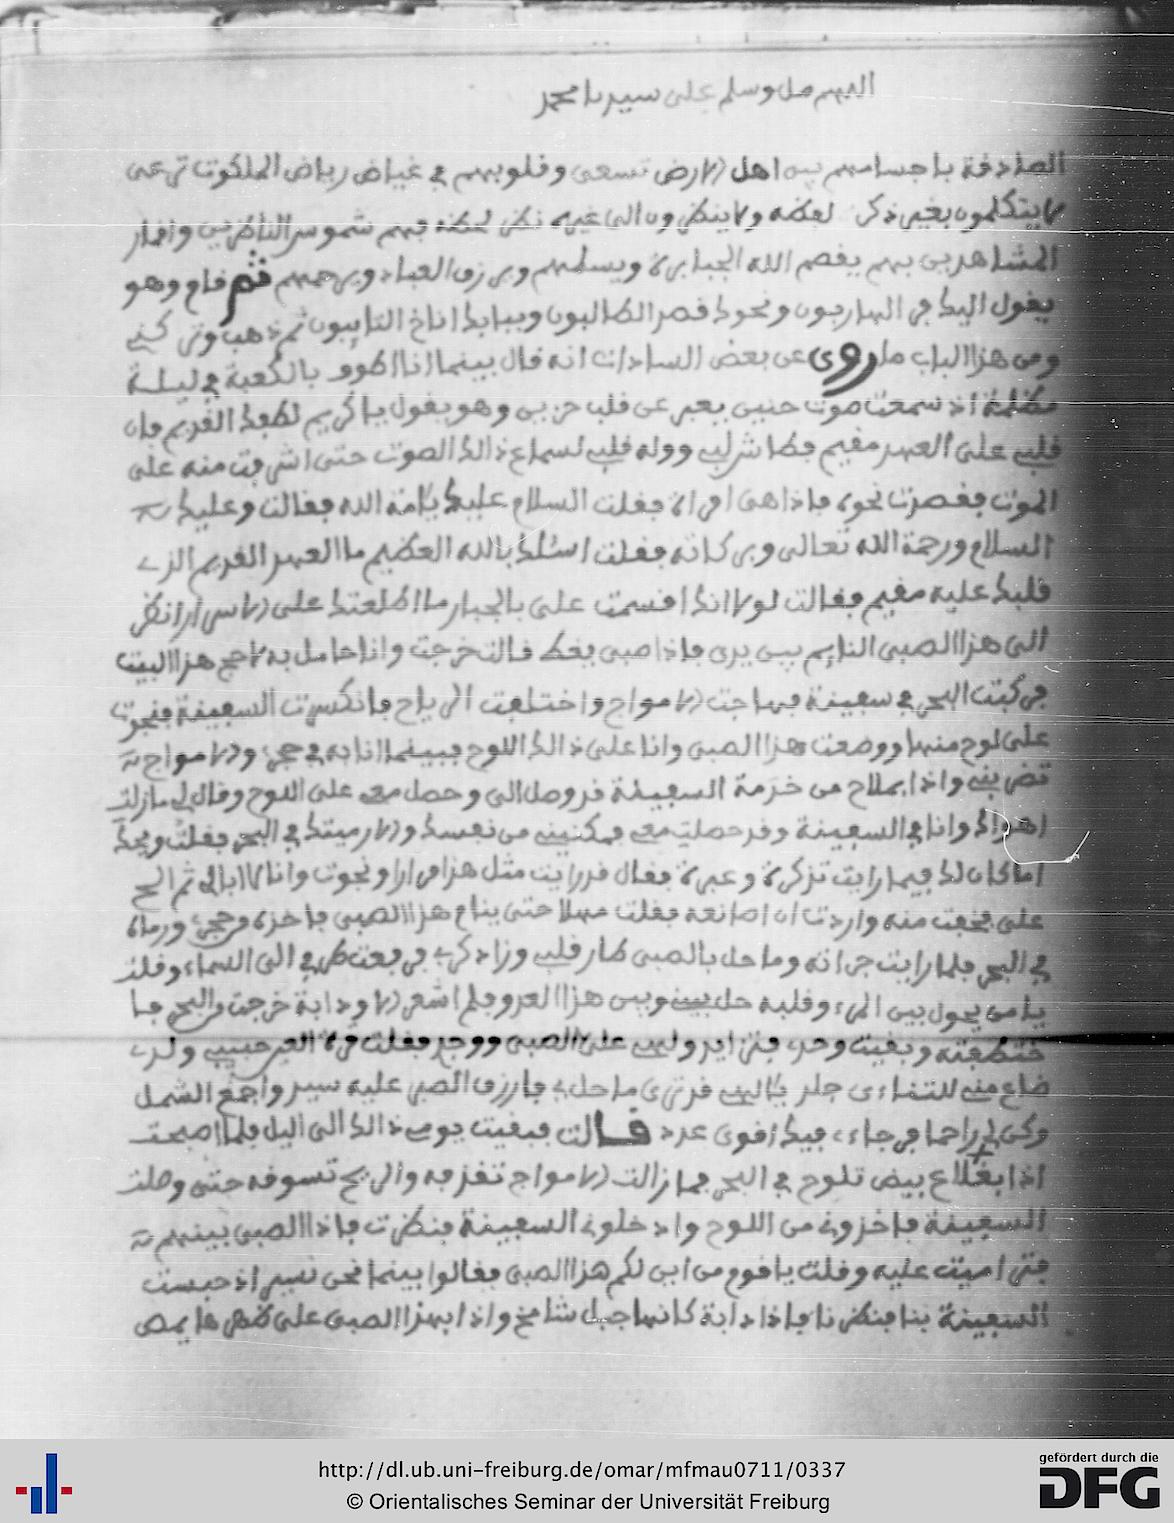 اللهم صل وسلم على سيدنا محمد
الصادقة باجسامهم بين اهل الارض تسعى وقلوبهم في غياض رياض الملكوت ترعى
لا يتكلمون بغير ذكر لفظه ولا ينظرون الى غيره فهم شموس الناظرين واقمار
المشاهدين بهم يقصم الله الجبابرة ويرزق العباد ويرحمهم ثم قام وهو
يقول اليك فر الهاربون ونحوك قصد الطالبون وببابك اناخ التايبون ثم ذهب وتركني
ومن هذا الباب ما روى عن بعض السادات انه قال بينما انا اطوف بالكعبة في ليلة
مظلمة اذ سمعت صوت حنين يعبر عن قلب حزين وهو يقول يا كريم لطفك القديم فان
قلبي على العهد مقيم فطاش لبي ووله قلبي لسماع ذالك الصوت حتى اشرفت منه على
الموت فقصدت نحوه فاذا هي امراة فقلت السلام عليك يا امة الله فقالت وعليك
السلام ورحمة الله تعالى وبركاته فقلت اسئلك بالله العظيم ما العهد القديم الذي
قلبك عليه مقيم فقالت لولا انك اقسمت علي بالجبار ما اطلعتك على الاسرار انظر
الى هذا الصبي النايم بين يدي فاذا صبي يغط قالت خرجت وانا حامل به لاحج هذا البيت
فركبت البحر في سفينة فهاجت الامواج واختلفت الرياح فانكسرت السفينة فنجوت
على لوح منها ووضعت هذا الصبي وانا على ذالك اللوح فبينما انا به في حجري والامواج
تضربني واذا بملاح من خدمة السفينة قد وصل الي وحصل معي على اللوح وقال لي ما زلت
اهواك وانا في السفينة وقد حصلت معي فمكنيني من نفسك والا رميتك في البحر فقلت ويحك
اما كان لك فيما رايت تذكرة وعبرة فقال قد رايت مثل هذا مرارا ونجوت وانا لا ابالي ثم الح
علي فخفت منه واردت ان اصانعه فقلت مهلا حتى ينام هذا الصبي فاخذه من حجري ورماه
في البحر فلما رايت جراته وما حل بالصبي طار قلبي وزاد كربي فرفعت طرفي الى السماء وقلت
يا من يحول بين المرء وقلبه حل بيني وبين هذا العدو فلم اشعر الا ودابة خرجت من البحر فا
ختطفته وبقيت وحدي فتزايد ولهي على الصبي ووجدي فقلت قرة العين حبيبي ولدي
ضاع مني جلد يا الهي قد ترى ما حل بي فارزق الصبر عليه سيد واجمع الشمل
وكن لي راحما فرجاءي فيك اقوى عدد قالت فبقيت يومي ذالك الى اليل فلما اصبحت
اذا بقلاع بيض تلوح في البحر فما زالت الامواج تقذفه والريح تسوقه حتى وصلت
السفينة فاخذوني من اللوح وادخلوني السفينة فنظرت فاذا الصبي بينهم
فتراميت عليه وقلت يا قوم من اين لكم هذا الصبي فقالوا بينما نحن نسير اذ حبست
السفينة بنا فنظرنا فاذا دابة كانها جبل شامخ واذا بهذا الصبي على ظهرها يمص
http://dl.ub.uni-freiburg.de/omar/mfmau0711/0337
© Orientalisches Seminar der Universität Freiburg
gefördert durch die
DFG